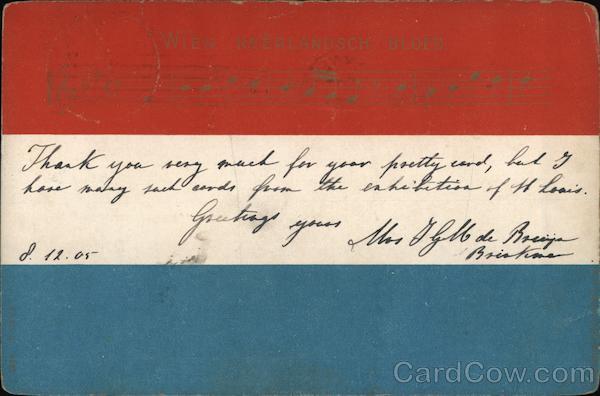 WIEN NEERLANDSCH BLOED
Thank you very much for your pretty card, but I
have many such cards from the exhibition of St Louis.
Greetings yours
Mrs J G M de Bruijn
8.12.05
CardCow.com